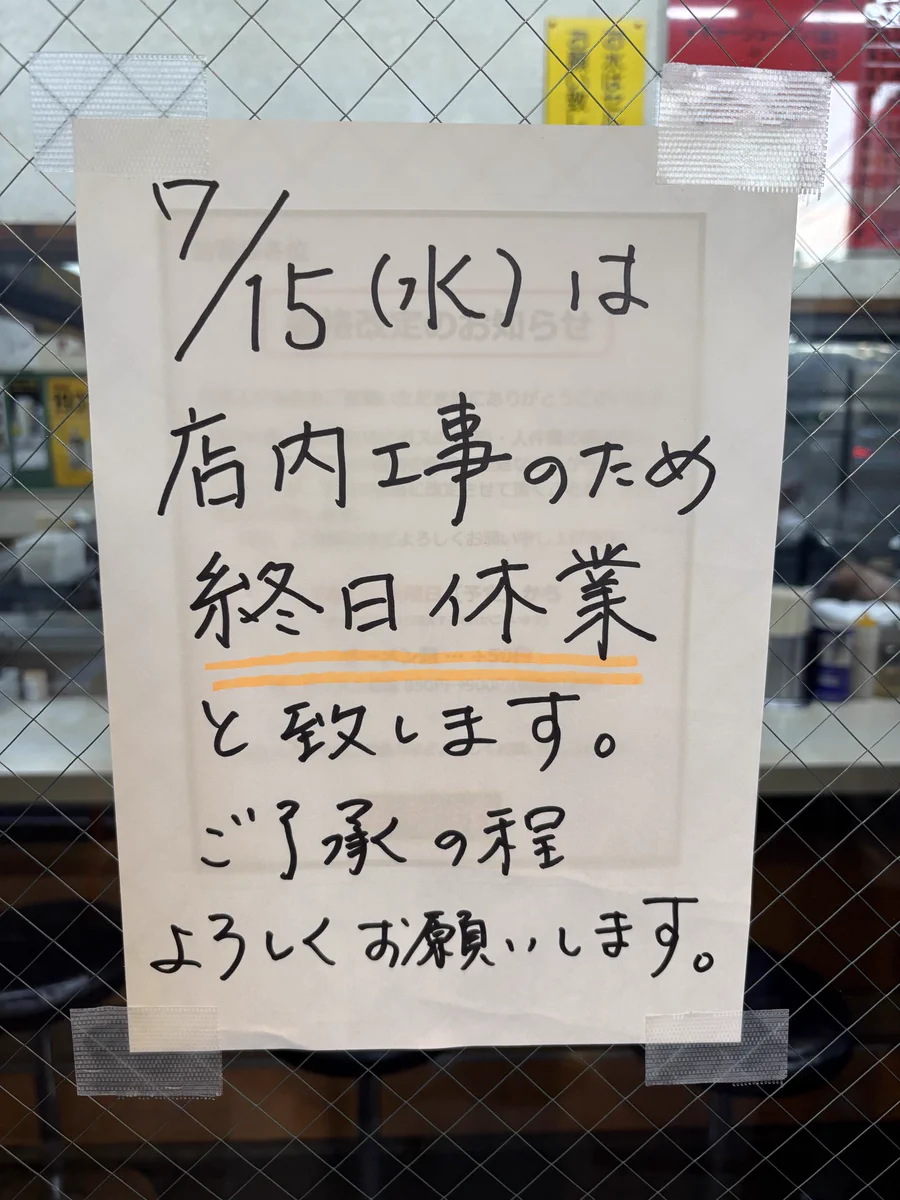 7/15(水)は
店内工事のため
終日休業
と致します。
ご了承の程
よろしくお願いします。
改定のお知らせ